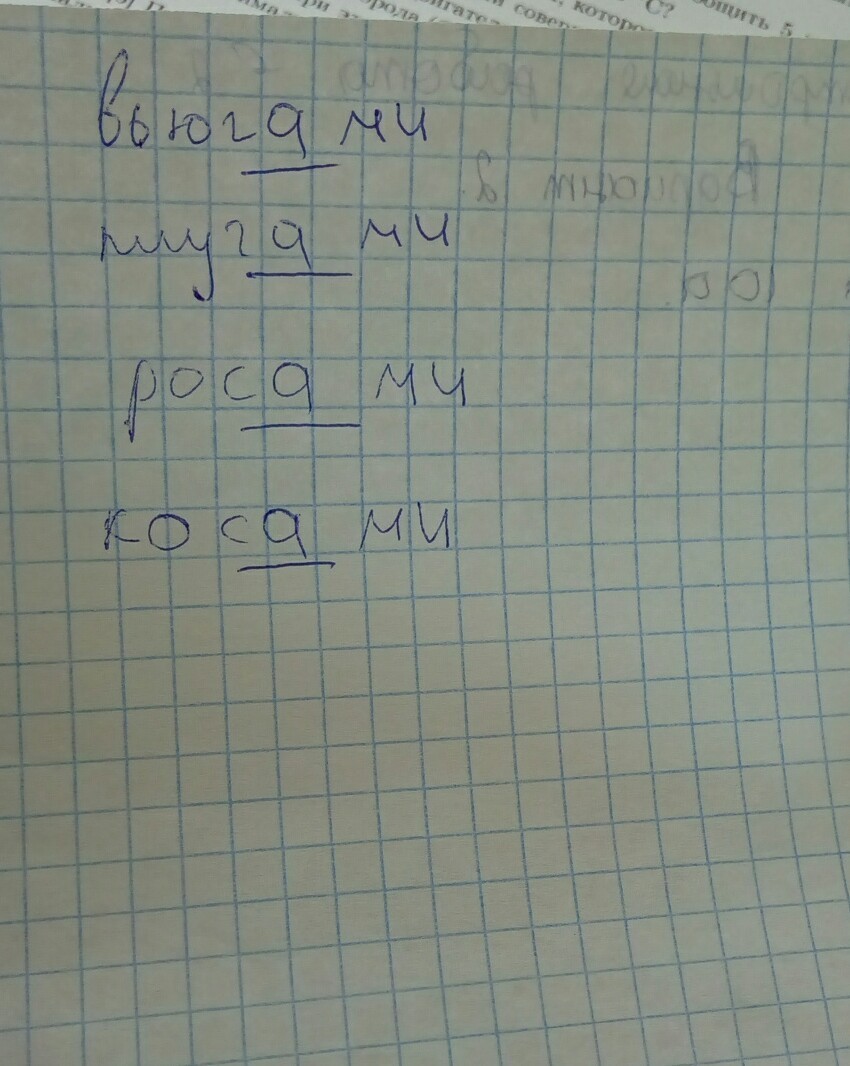 вьюгами
плугами
росами
косами